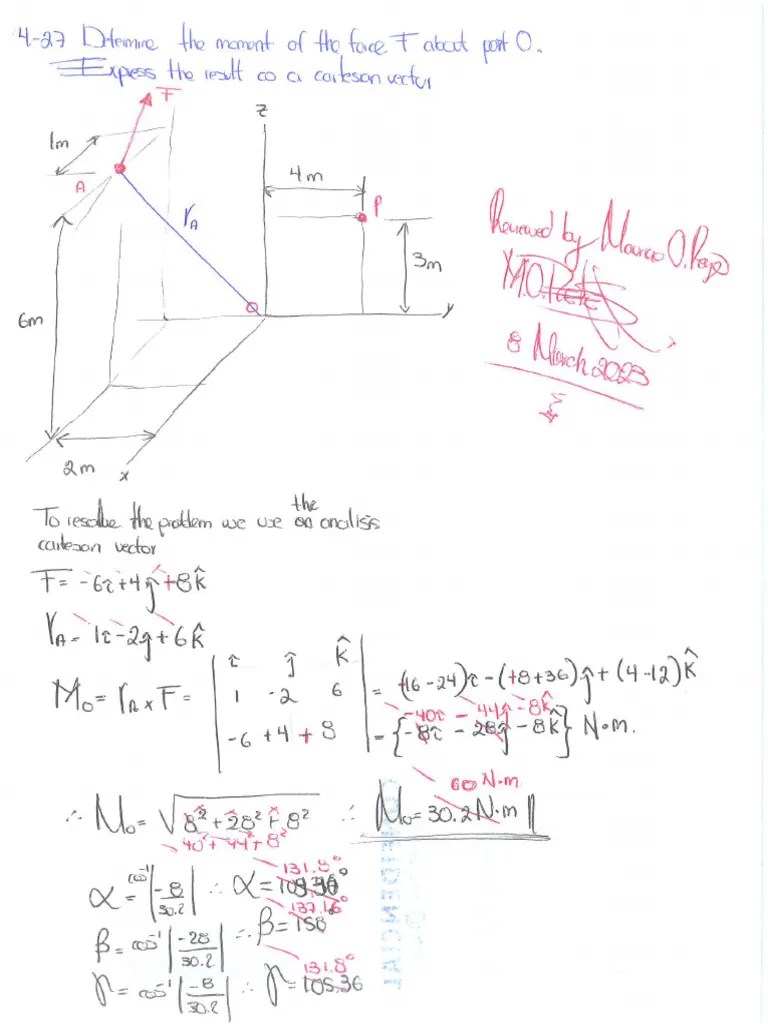 4-27 Determine the moment of the force F about point O.
Express the result as a cartesian vector
F
z
1m
4m
A
rA
P
3m
6m
O
y
2m
x
Reviewed by
8 March 2023
To resolve the problem we use the analisis
cartesan vector
F = -6î+4ĵ+8k̂
rA = 1î-2ĵ+6k̂
î ĵ k̂
Mo = rA x F = 1 -2 6 = (16-24)î - (+8+36)ĵ + (4-12)k̂
-40î - 44ĵ - 8k̂
-6 +4 +8 = {-8î - 28ĵ - 8k̂} N·m.
60 N·m
∴ Mo = √8²+28²+8² ∴ Mo = 30.2 N·m
40²+44²+8²
131.8°
α = cos⁻¹|-8/30.2| ∴ α =
137.16°
β = cos⁻¹|-28/30.2| ∴ β = 158
131.8°
γ = cos⁻¹|-8/30.2| ∴ γ = 105.36
CONFIDENCIAL